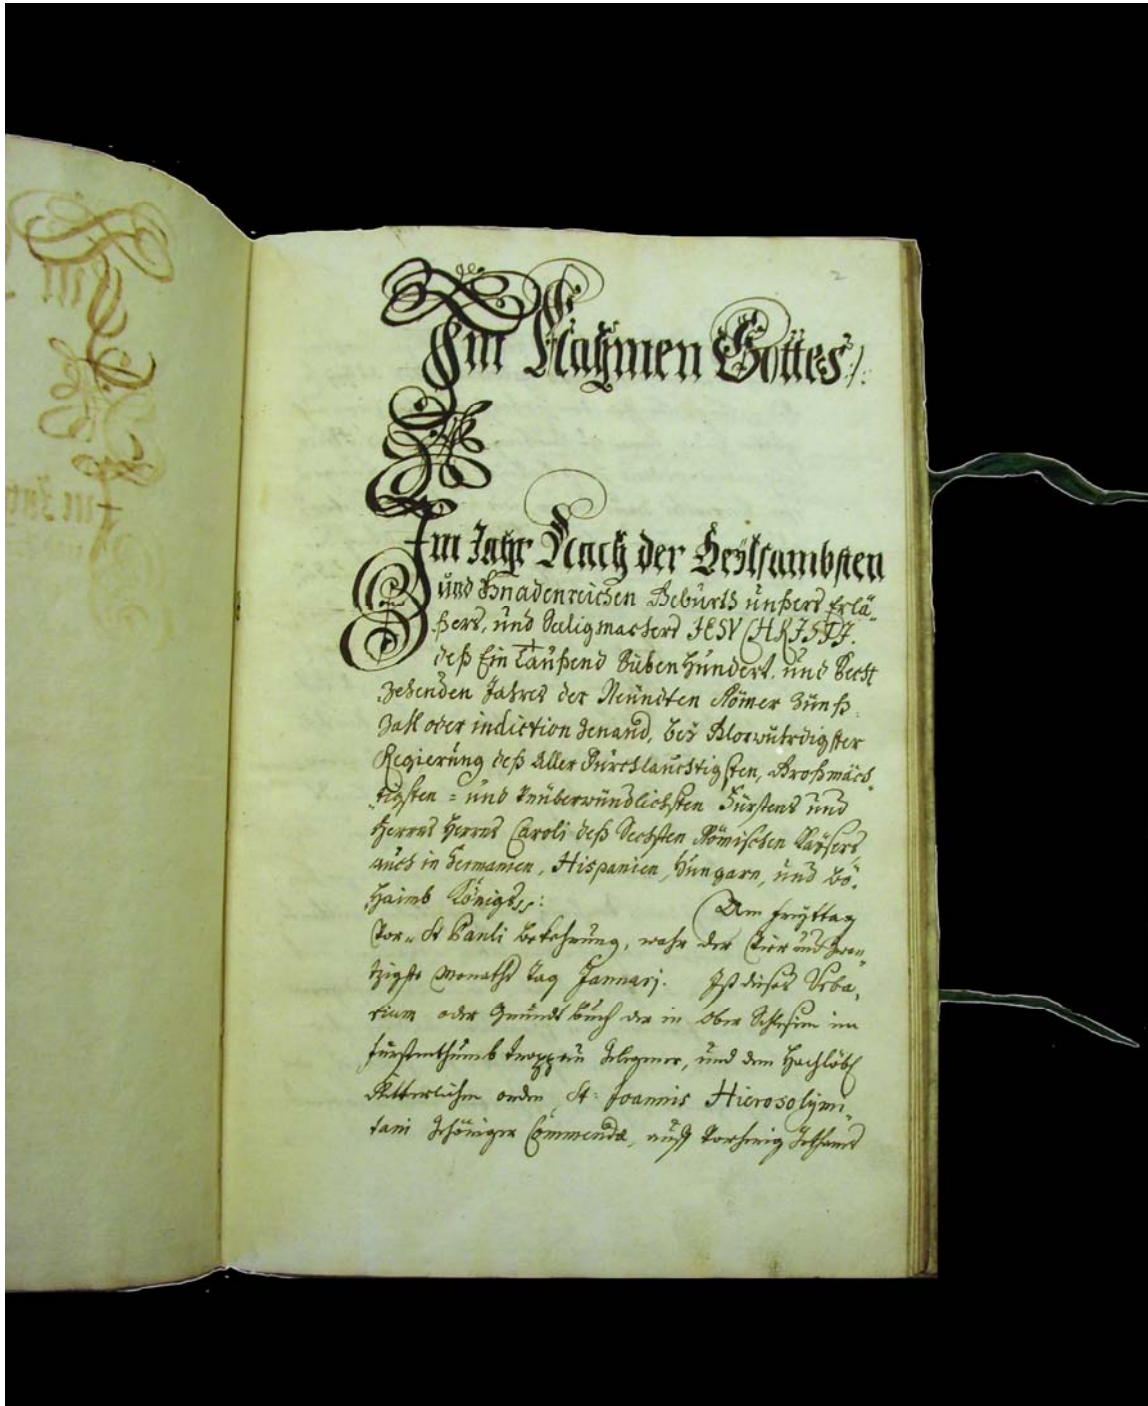 2
Im Nahmen Gottes /:
Im Jahr Nach der Heÿlsambsten
und Gnadenreichen Gebürth ünßers Erlö„
ßers, und Seeligmachers JESV CHRISTI.
deß Ein Taußend Süben Hundert, und Sech
zehenden Jahres der Neündten Römer Zünß
Zahl oder indiction genand, beÿ Glorwürdigster
Regierüng deß Aller Dürchlauchtigsten, Großmäch„
tigsten = und Unüberwündlichsten Fürstens und
Herrns Herrns Caroli deß Sechsten Römischen Kaÿsers,
auch in Germanien, Hispanien, Hungarn, und Bö„
Haimb Königs:
Am Freÿttag
Vor St Pauli bekehrung, wahr der Vier und Zwan„
tzigste Monaths Tag Januarj. Ist dieses Urba„
rium oder Grundt buch der in Ober Schlesien im
Fürstenthumb Troppau gelegener, und dem Hochlöbl
Ritterlichen orden St: Joannis Hierosolÿmi„
tani gehöriger Commenda, auff Vorherig